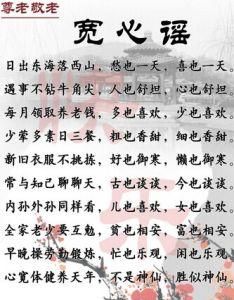 尊老敬老
宽心谣
日出东海落西山，愁也一天，喜也一天。
遇事不钻牛角尖，人也舒坦，心也舒坦。
每月领取养老钱，多也喜欢，少也喜欢。
少荤多素日三餐，粗也香甜，细也香甜。
新旧衣服不挑拣，好也御寒，懒也御寒。
常与知己聊聊天，古也谈谈，今也谈谈。
内孙外孙同样看，儿也喜欢，女也喜欢。
全家老少要互勉，贫也相安，富也相安。
早晚操劳勤锻炼，忙也乐观，闲也乐观。
心宽体健养天年，不是神仙，胜似神仙。